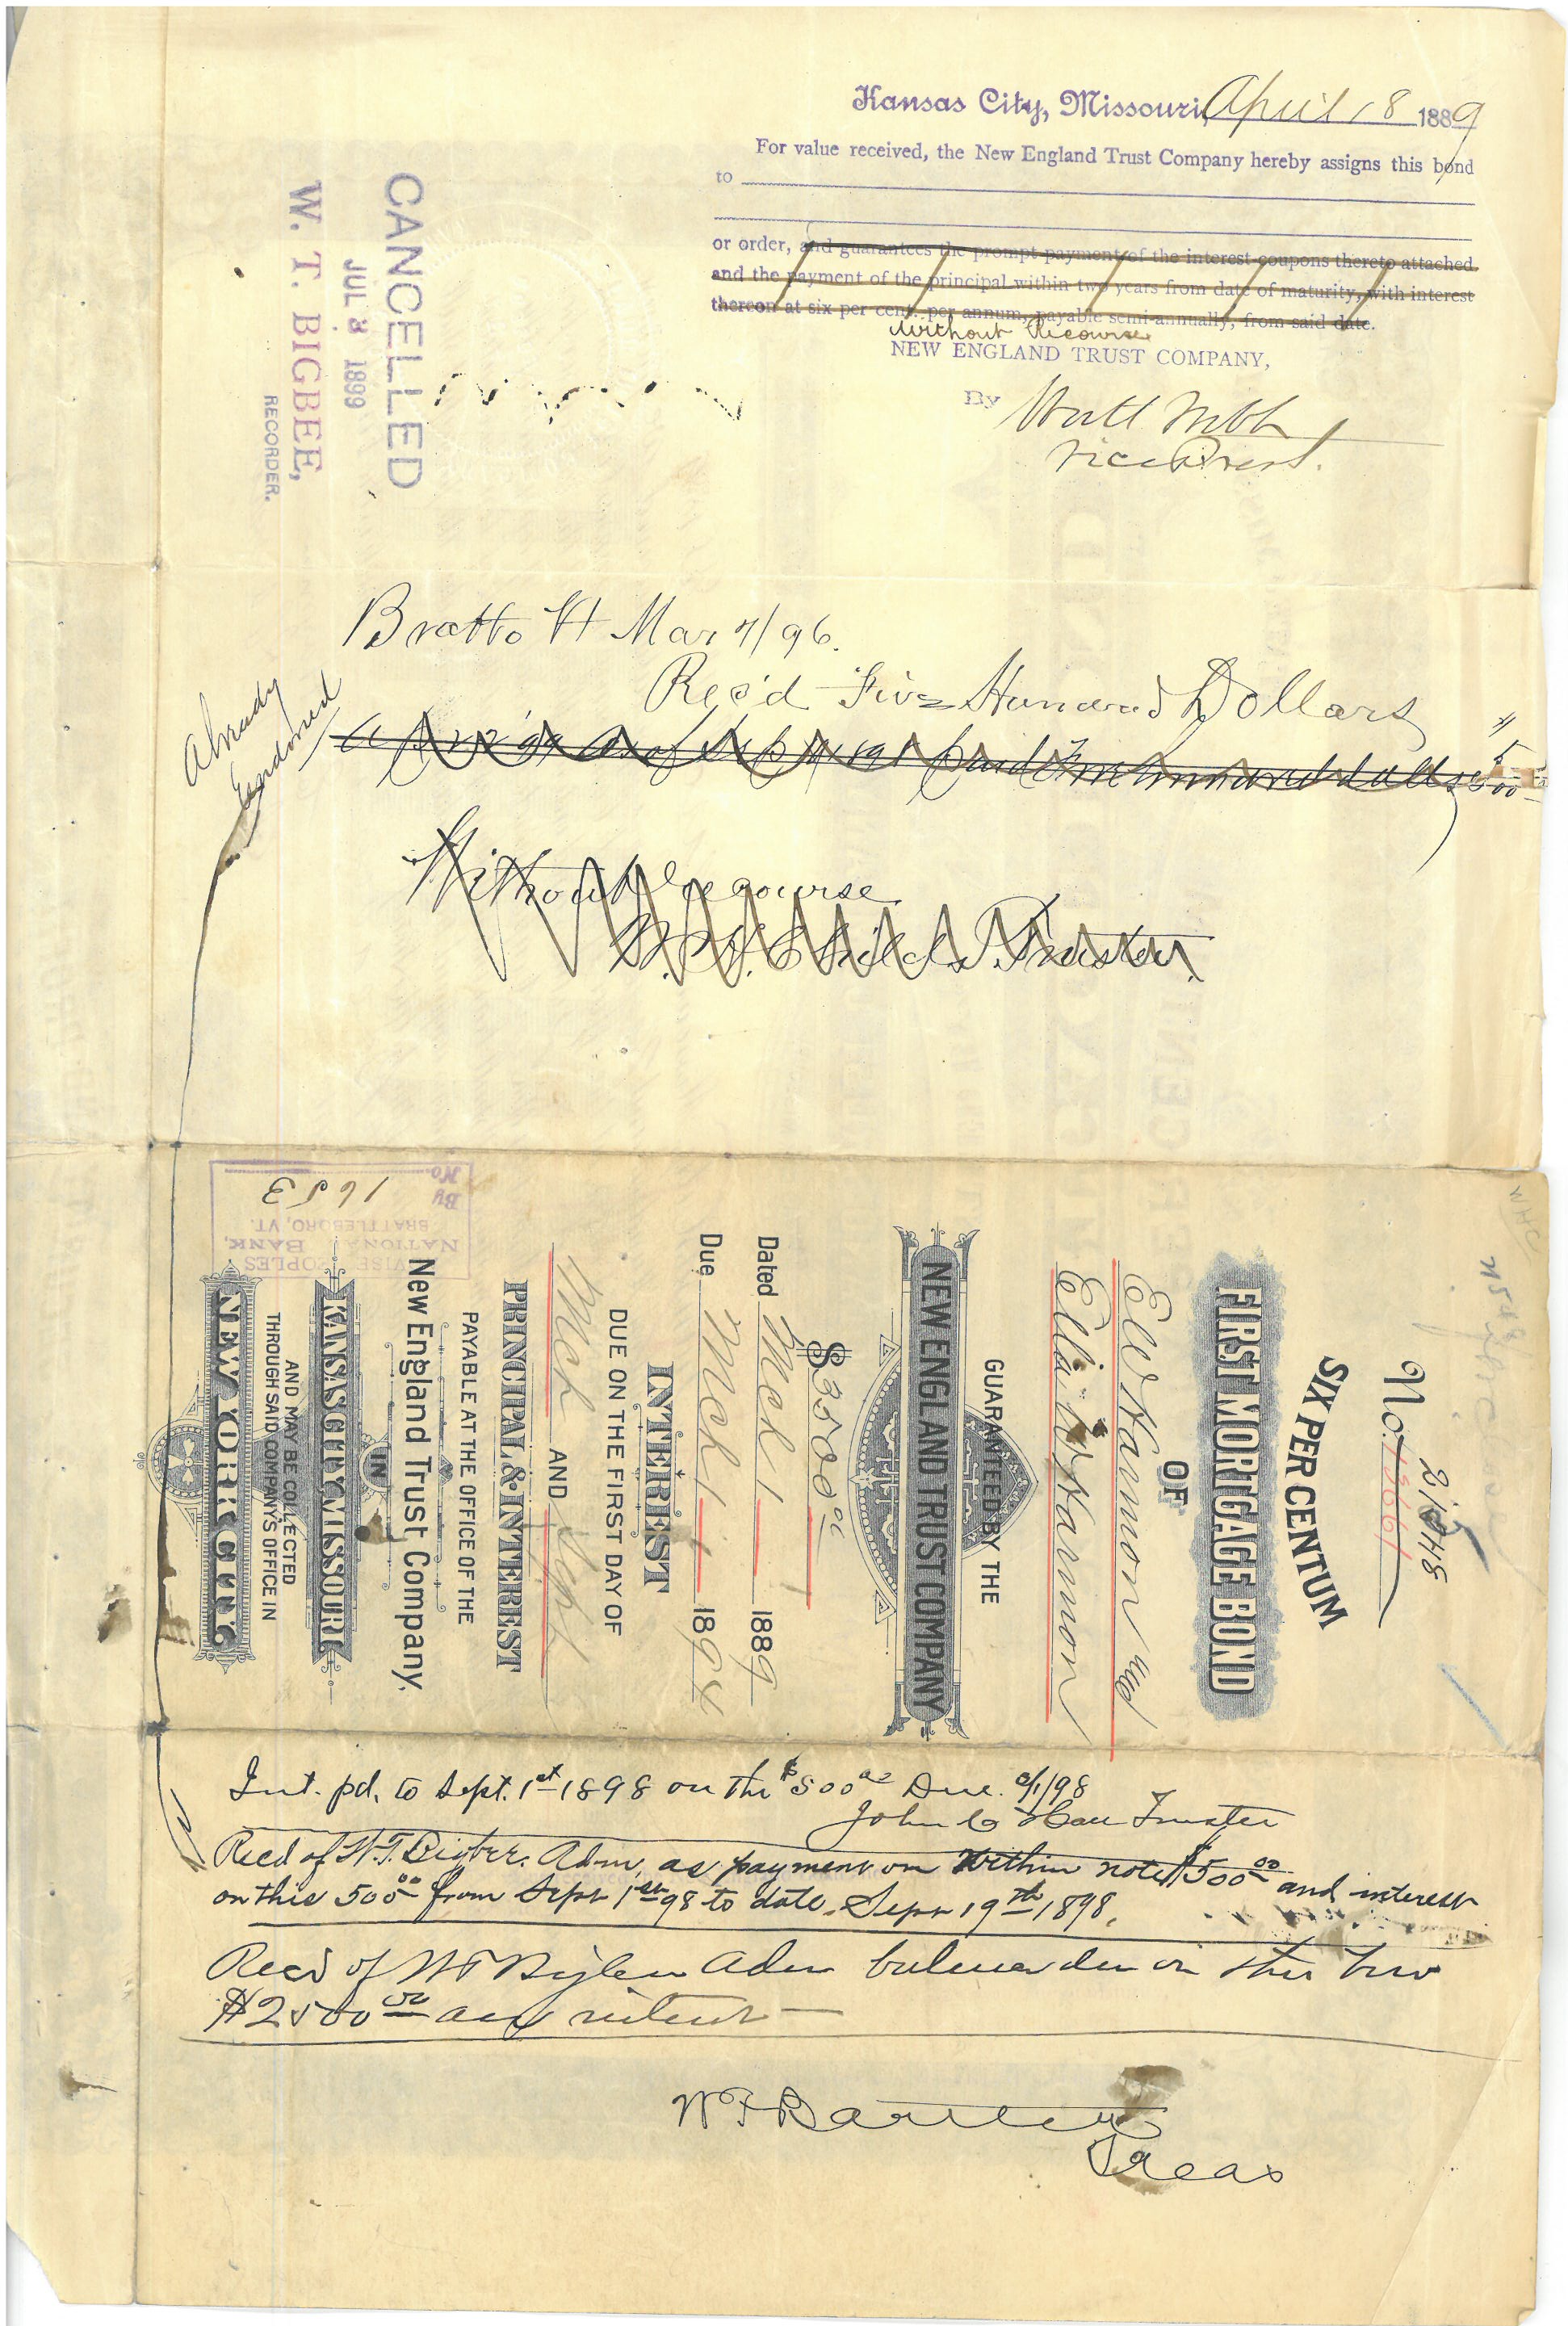 Kansas City, Missouri, April 18 1889
For value received, the New England Trust Company hereby assigns this bond
to
or order, and guarantees the prompt payment of the interest coupons thereto attached
and the payment of the principal within two years from date of maturity, with interest
thereon at six per cent. per annum, payable semi-annually, from said date.
Without Recourse
NEW ENGLAND TRUST COMPANY,
By
Vice Prest.
CANCELLED
JUL 3 1899
W. T. BIGBEE,
RECORDER.
Bratto Vt Mar 7/96.
Rec'd Five Hundred Dollars
Already
Endorsed
paid Five hundred dolls
Without recourse
Trustee.
No. 13661
21548
SIX PER CENTUM
FIRST MORTGAGE BOND
OF
Eli Hannon
GUARANTEED BY THE
NEW ENGLAND TRUST COMPANY
$3500 00
Dated Mch 1 1889
Due Mch 1 1894
INTEREST
DUE ON THE FIRST DAY OF
Mch AND Sept
PRINCIPAL & INTEREST
PAYABLE AT THE OFFICE OF THE
New England Trust Company,
IN
KANSAS CITY, MISSOURI
AND MAY BE COLLECTED
THROUGH SAID COMPANY'S OFFICE IN
NEW YORK CITY
PEOPLES
NATIONAL BANK,
BRATTLEBORO, VT.
By
No. 1653
W H C
Int. pd. to Sept. 1st 1898 on the $500 00 Due 9/1/98
John C Trustee
Recd of W.T. Bigbee. Adm, as payment on within note $500 00 and interest
on this 500 00 from Sept 1st 98 to date. Sept 19th 1898.
Recd of W T Bigbee Adm balance due on this
$2500 00 and interest
W F Bartlett
Treas